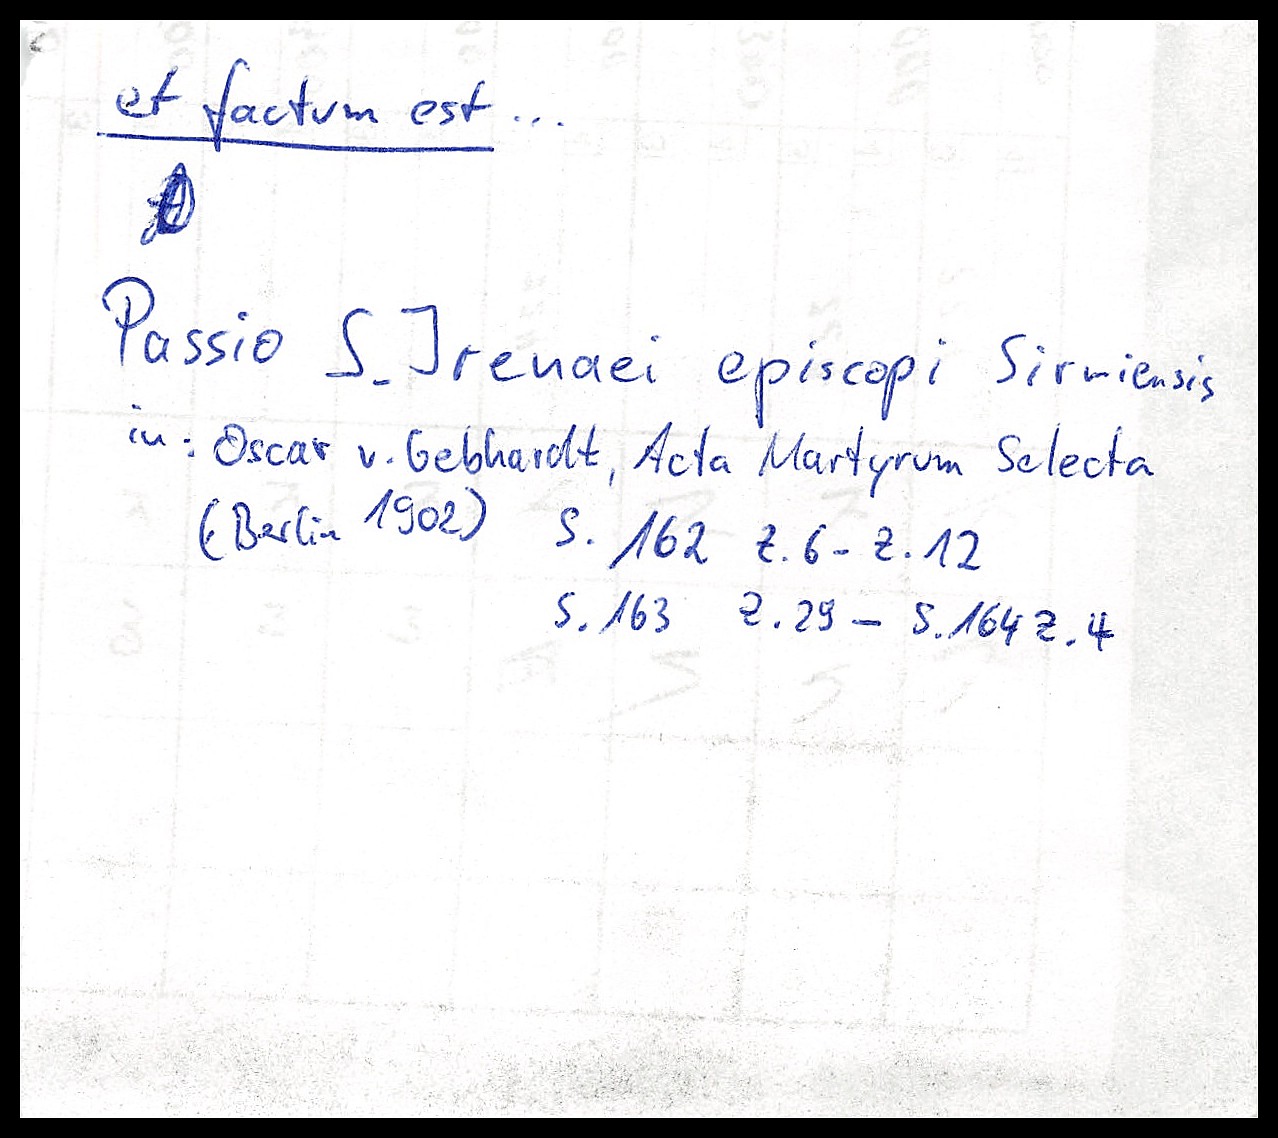 et factum est...
Passio S. Irenaei episcopi Sirmiensis
in: Oscar v. Gebhardt, Acta Martyrum Selecta
(Berlin 1902) S. 162 Z. 6 - Z. 12
S. 163 Z. 29 - S. 164 Z. 4